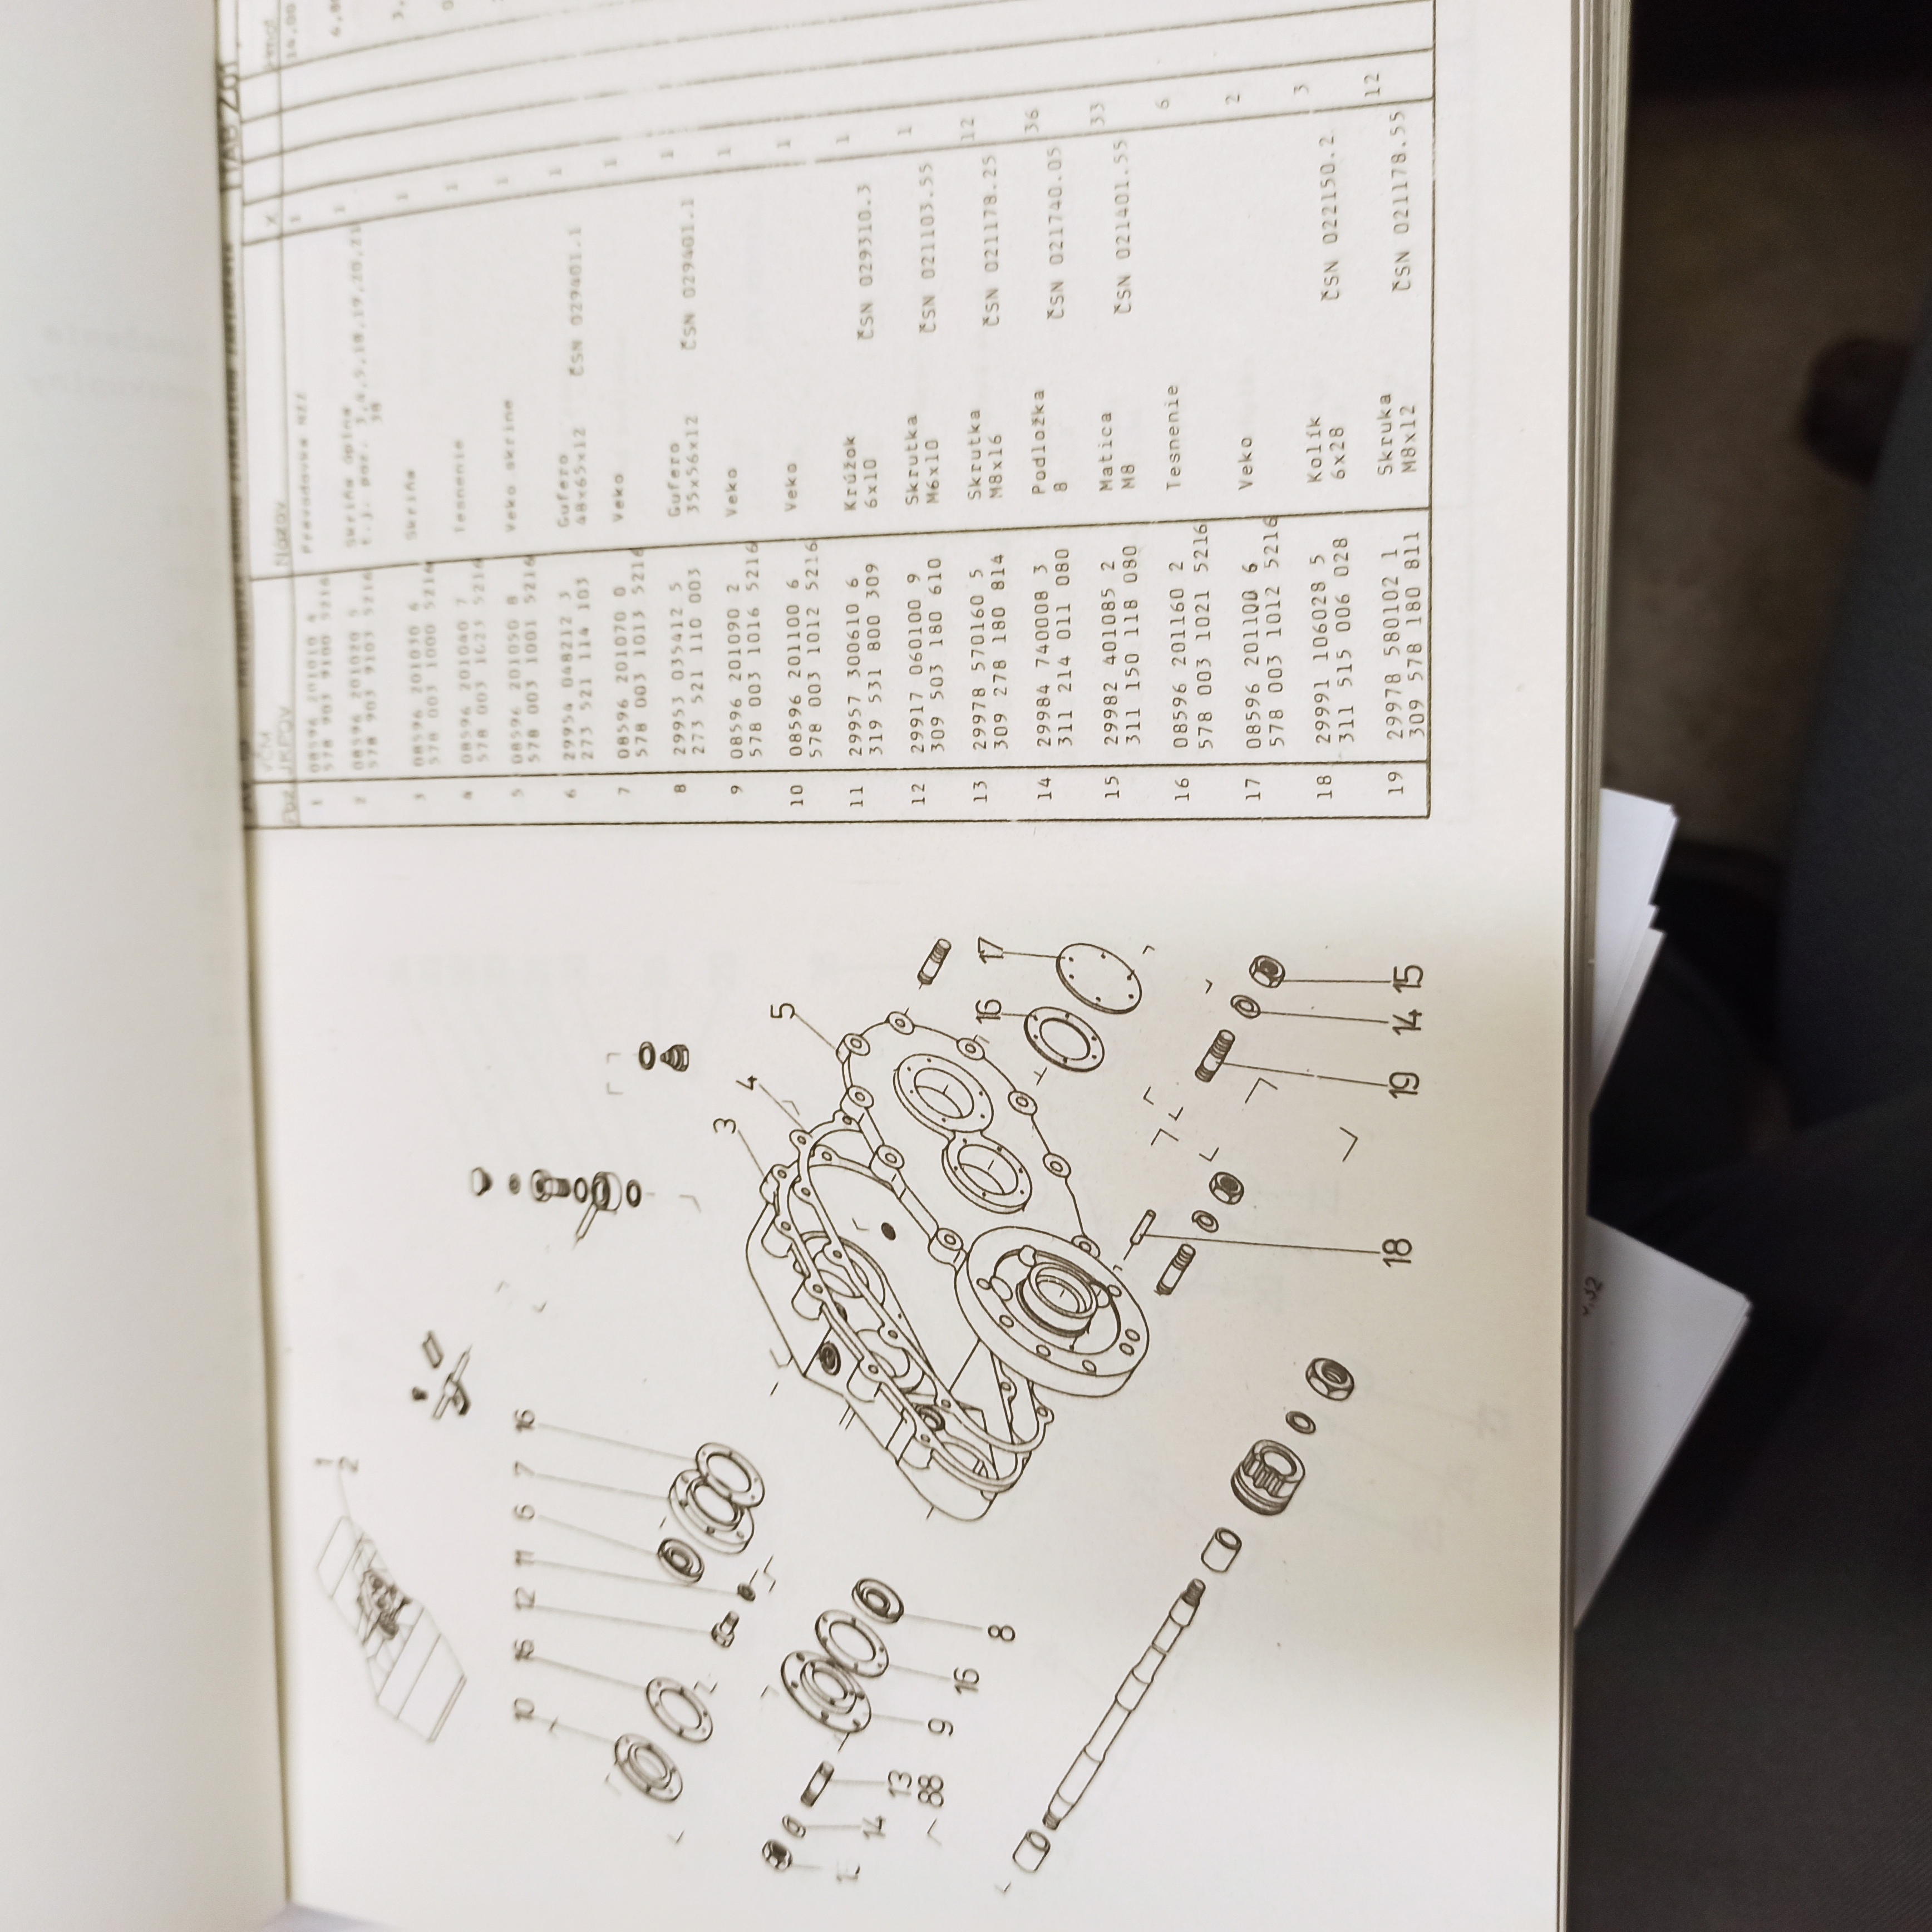 TAB Z01
Poz.
VČM
JKPOV
Názov
X
Hmot
1
08596 201010 4
578 903 9100 5216
Prevodovka
1
14,00
2
08596 201020 5
578 903 9103 5216
Skriňa úplná
t.j. poz. 3,4,5,18,19,20,21
38
1
3
08596 201030 6
578 003 1000 5216
Skriňa
1
4
08596 201040 7
578 003 1023 5216
Tesnenie
1
5
08596 201050 8
578 003 1001 5216
Veko skrine
1
6
29954 048212 3
273 521 114 103
Gufero
48x65x12 ČSN 029401.1
1
7
08596 201070 0
578 003 1013 5216
Veko
1
8
29953 035412 5
273 521 110 003
Gufero
35x56x12 ČSN 029401.1
1
9
08596 201090 2
578 003 1016 5216
Veko
1
10
08596 201100 6
578 003 1012 5216
Veko
1
11
29957 300610 6
319 531 800 309
Krúžok
6x10 ČSN 029310.3
1
12
29917 060100 9
309 503 180 610
Skrutka
M6x10 ČSN 021103.55
1
13
29978 570160 5
309 278 180 814
Skrutka
M8x16 ČSN 021178.25
12
14
29984 740008 3
311 214 011 080
Podložka
8 ČSN 021740.05
36
15
29982 401085 2
311 150 118 080
Matica
M8 ČSN 021401.55
33
16
08596 201160 2
578 003 1021 5216
Tesnenie
6
17
08596 201100 6
578 003 1012 5216
Veko
2
18
29991 106028 5
311 515 006 028
Kolík
6x28 ČSN 022150.2
3
19
29978 580102 1
309 578 180 811
Skruka
M8x12 ČSN 021178.55
12
1
2
10
16
12
11
6
7
16
3
4
5
16
17
14
13
88
9
16
8
18
19
14
15